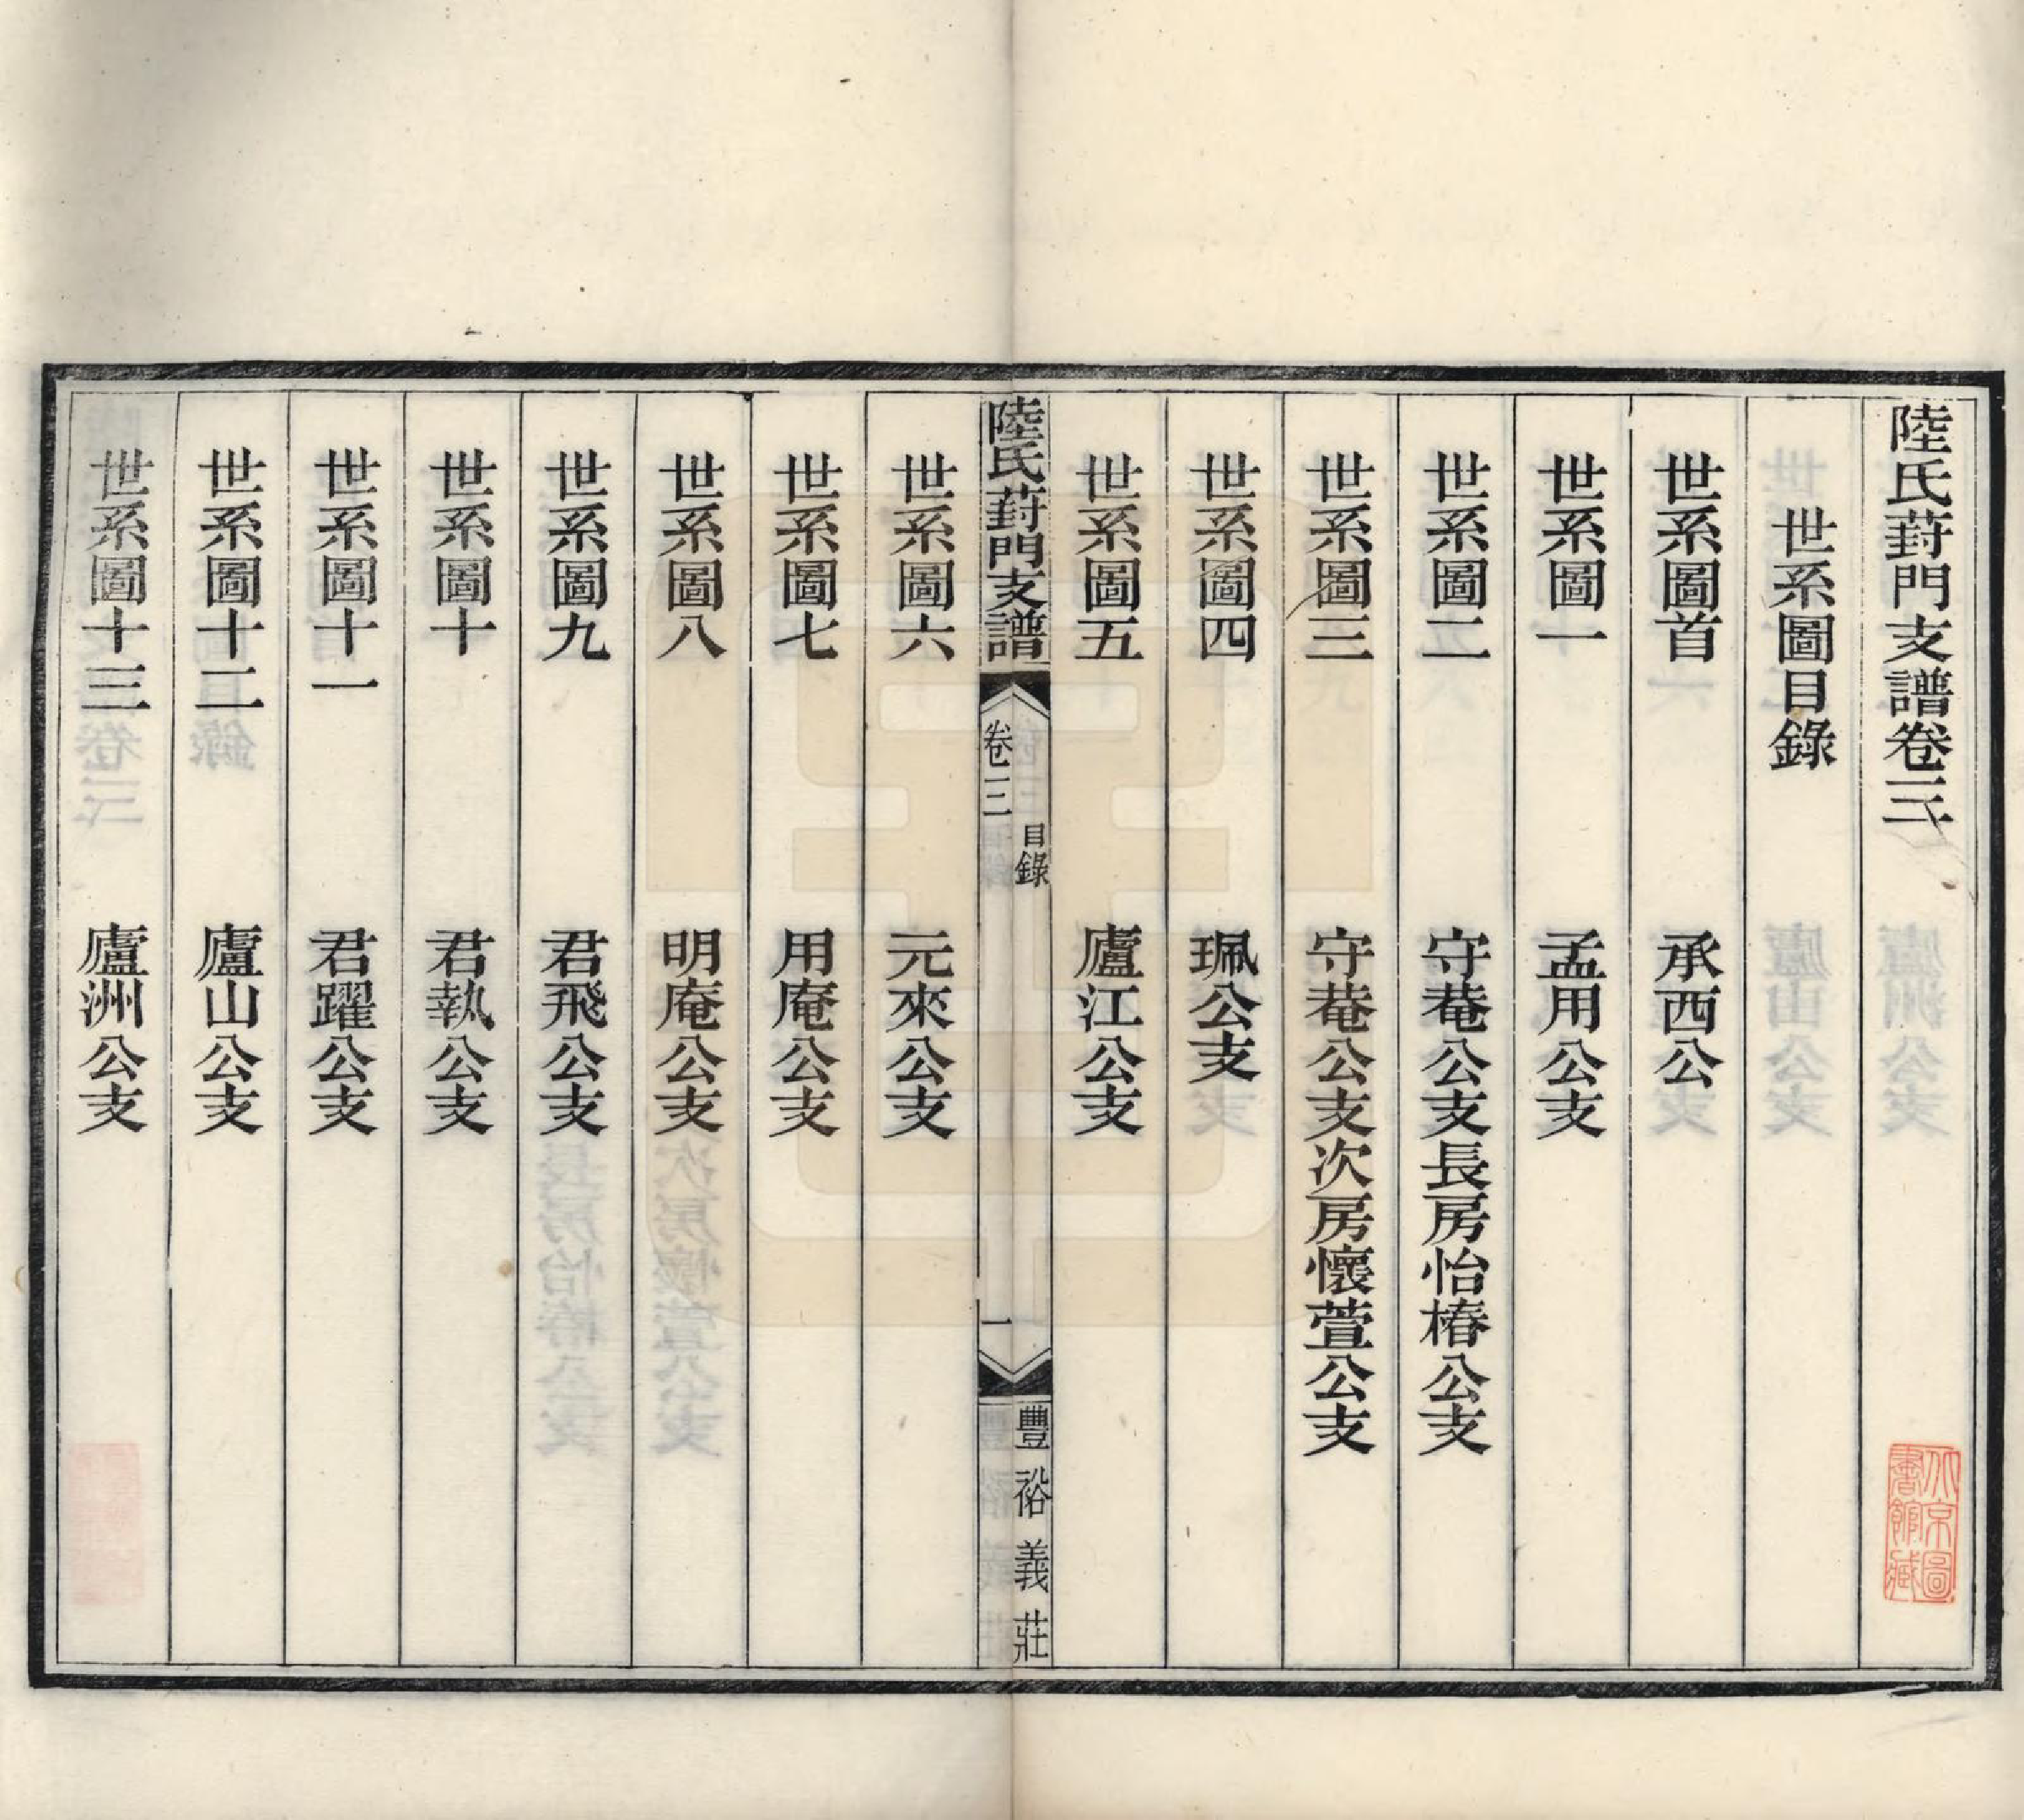 陸氏葑門支譜卷三
世系圖目錄
世系圖首　承西公
世系圖一　孟用公支
世系圖二　守菴公支長房怡椿公支
世系圖三　守菴公支次房懷萱公支
世系圖四　珮公支
世系圖五　廬江公支
陸氏葑門支譜　卷三　目錄　一　豐裕義莊
世系圖六　元來公支
世系圖七　用庵公支
世系圖八　明庵公支
世系圖九　君飛公支
世系圖十　君執公支
世系圖十一　君躍公支
世系圖十二　廬山公支
世系圖十三　廬洲公支
北京圖書館藏